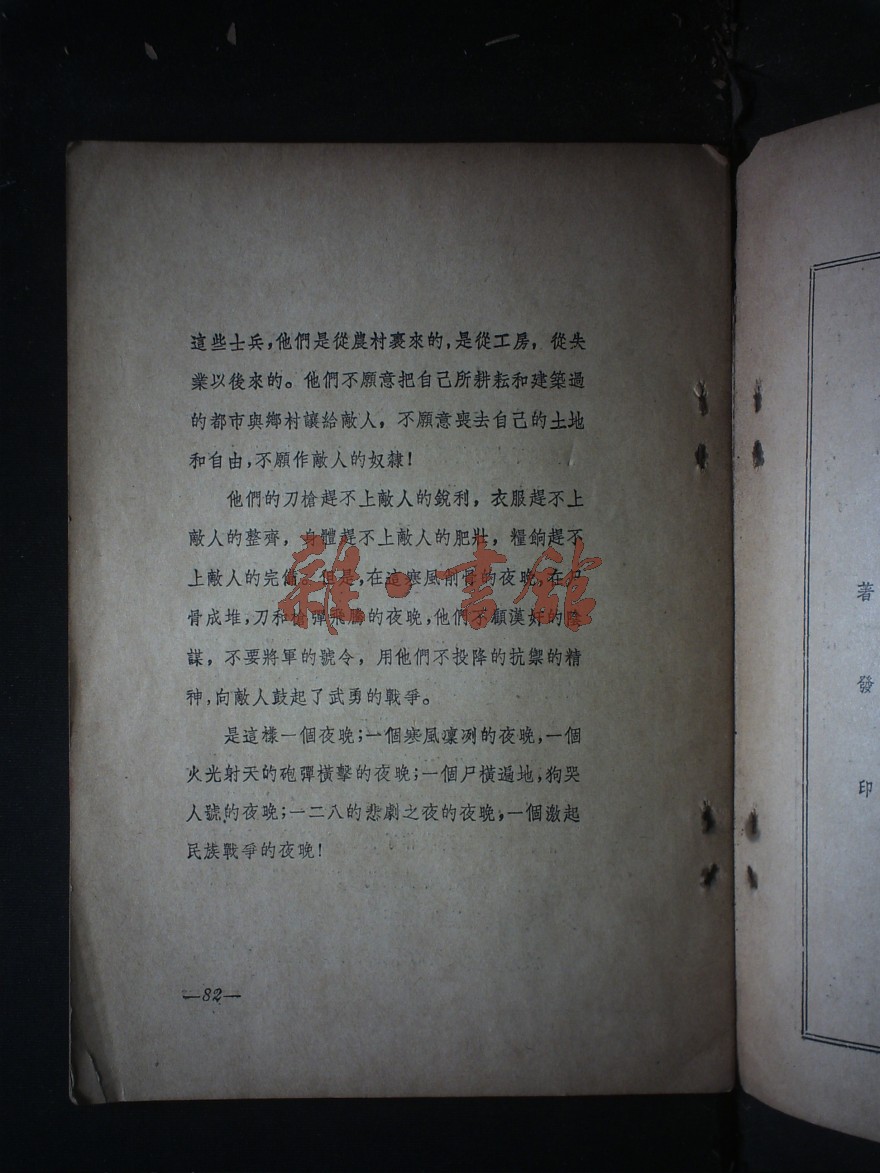 這些士兵，他們是從農村裹來的，是從工房，從失
業以後來的。他們不願意把自己所耕耘和建築過
的都市與鄉村讓給敵人，不願意喪去自己的土地
和自由，不願作敵人的奴隸！
他們的刀槍趕不上敵人的銳利，衣服趕不上
敵人的整齊，身體趕不上敵人的肥壯，糧餉趕不
上敵人的完備。但是，在這寒風削骨的夜晚，在尸
骨成堆，刀和槍彈飛騰的夜晚，他們不顧漢奸的陰
謀，不要將軍的號令，用他們不投降的抗禦的精
神，向敵人鼓起了武勇的戰爭。
是這樣一個夜晚；一個寒風凜冽的夜晚，一個
火光射天的砲彈橫擊的夜晚；一個尸橫遍地，狗哭
人號的夜晚；一二八的悲劇之夜的夜晚，一個激起
民族戰爭的夜晚！
—82—
雜·書館
著
發
印